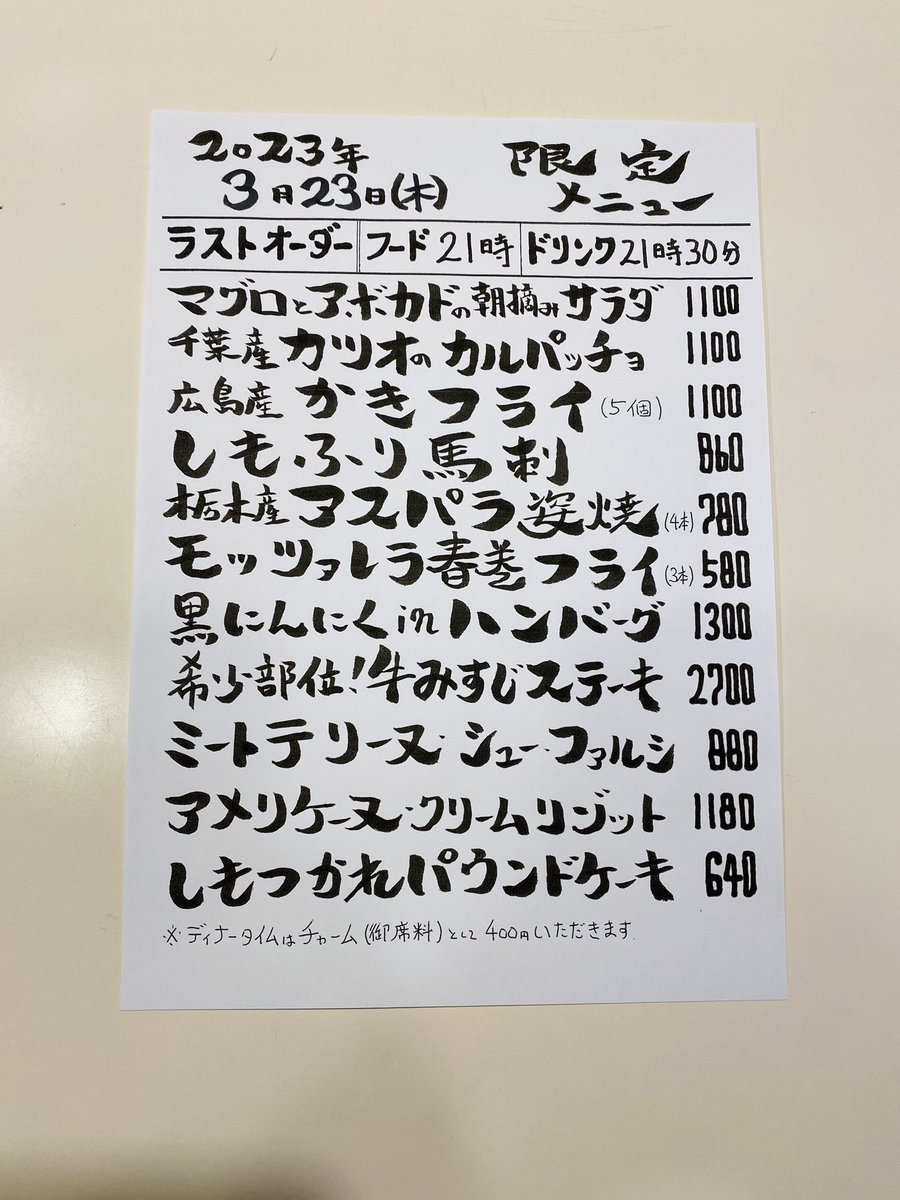 2023年
3月23日(木)
限定
メニュー
ラストオーダー フード21時 ドリンク21時30分
マグロとアボカドの朝摘みサラダ 1100
千葉産カツオのカルパッチョ 1100
広島産かきフライ(5個) 1100
しもふり馬刺 860
栃木産アスパラ姿焼(4本) 780
モッツァレラ春巻フライ(3本) 580
黒にんにくinハンバーグ 1300
希少部位!牛みすじステーキ 2700
ミートテリーヌ・シュー・ファルシ 880
アメリケーヌ・クリームリゾット 1180
しもつかれパウンドケーキ 640
※ディナータイムはチャーム(御席料)として400円いただきます.